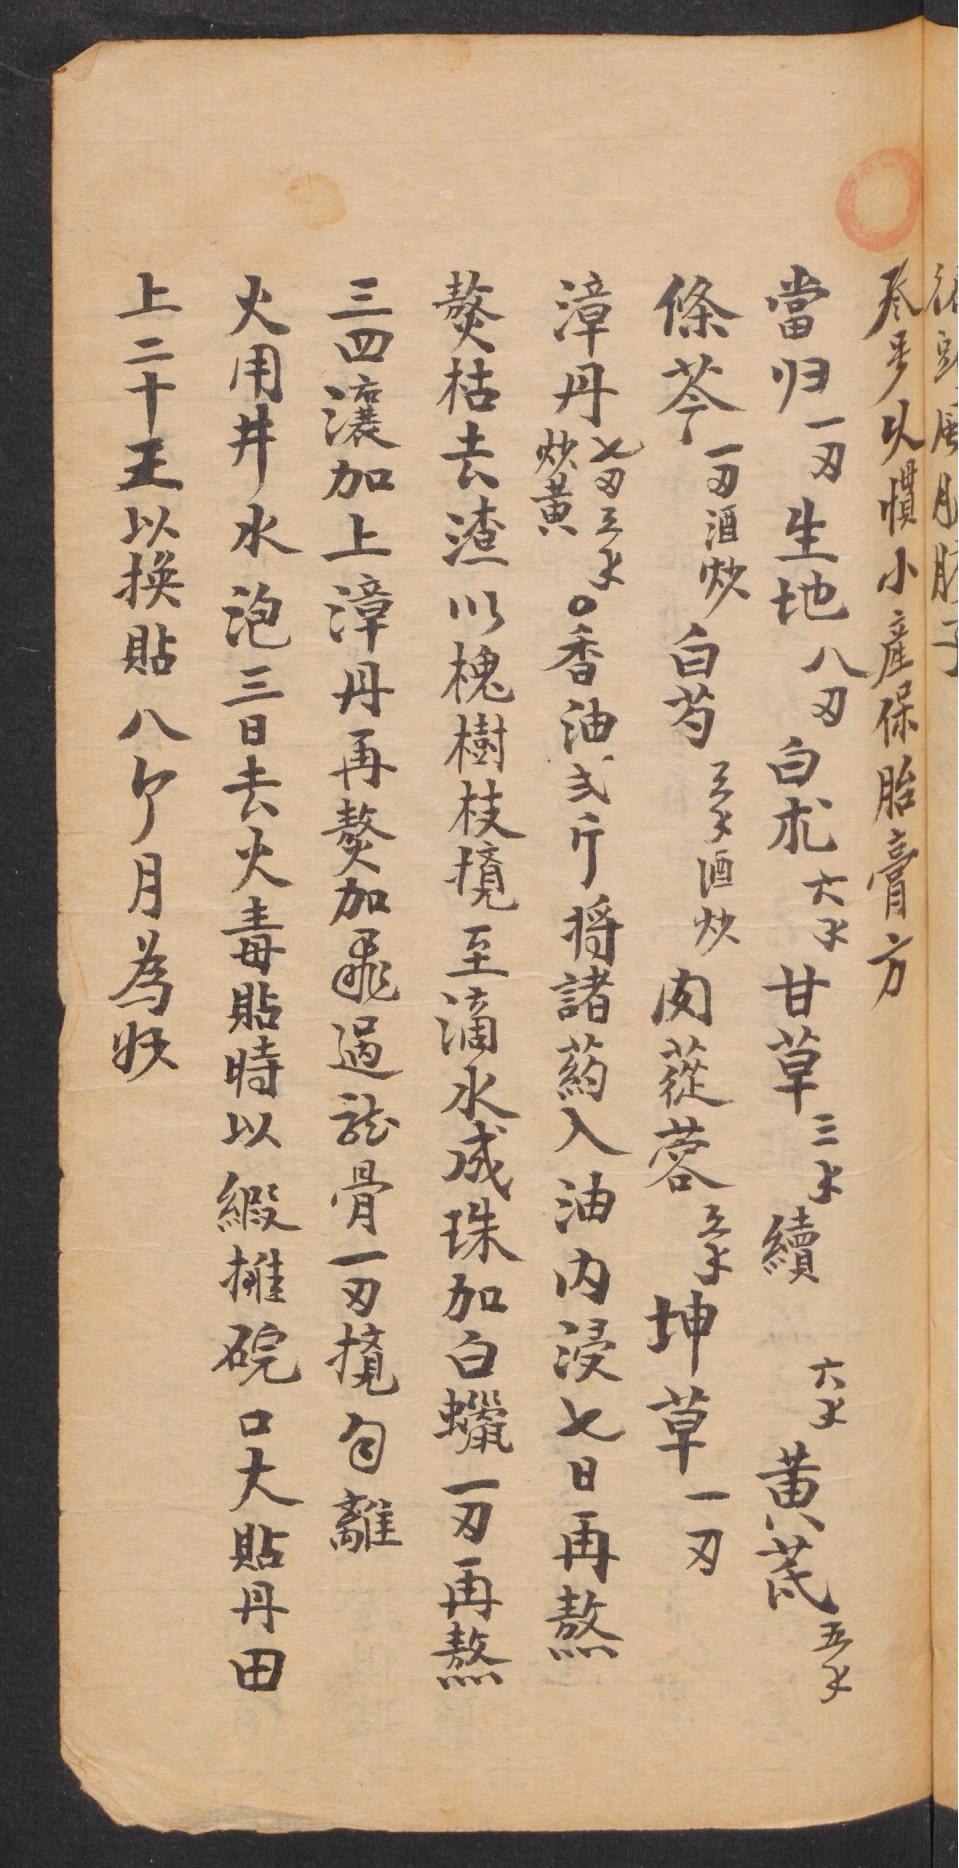 以慣小產保胎膏方
當归一刃生地八刃白朮六水甘草三水續六水黄芪五水
條芩一刃酒炒白芍三水酒炒肉蓯蓉三水坤草一刃
漳丹七刃三水炒黄○香油弍斤将諸葯入油内浸七日再熬
熬枯去渣以槐樹枝攪至滴水成珠加白蠟一刃再熬
三四滾加上漳丹再熬加飛過龍骨一刃攪匀離
火用井水泡三日去火毒貼時以緞摊碗口大貼丹田
上二十天以换貼八个月為妖